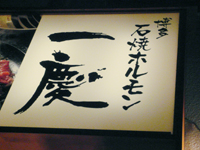 博多
石焼ホルモン
一慶